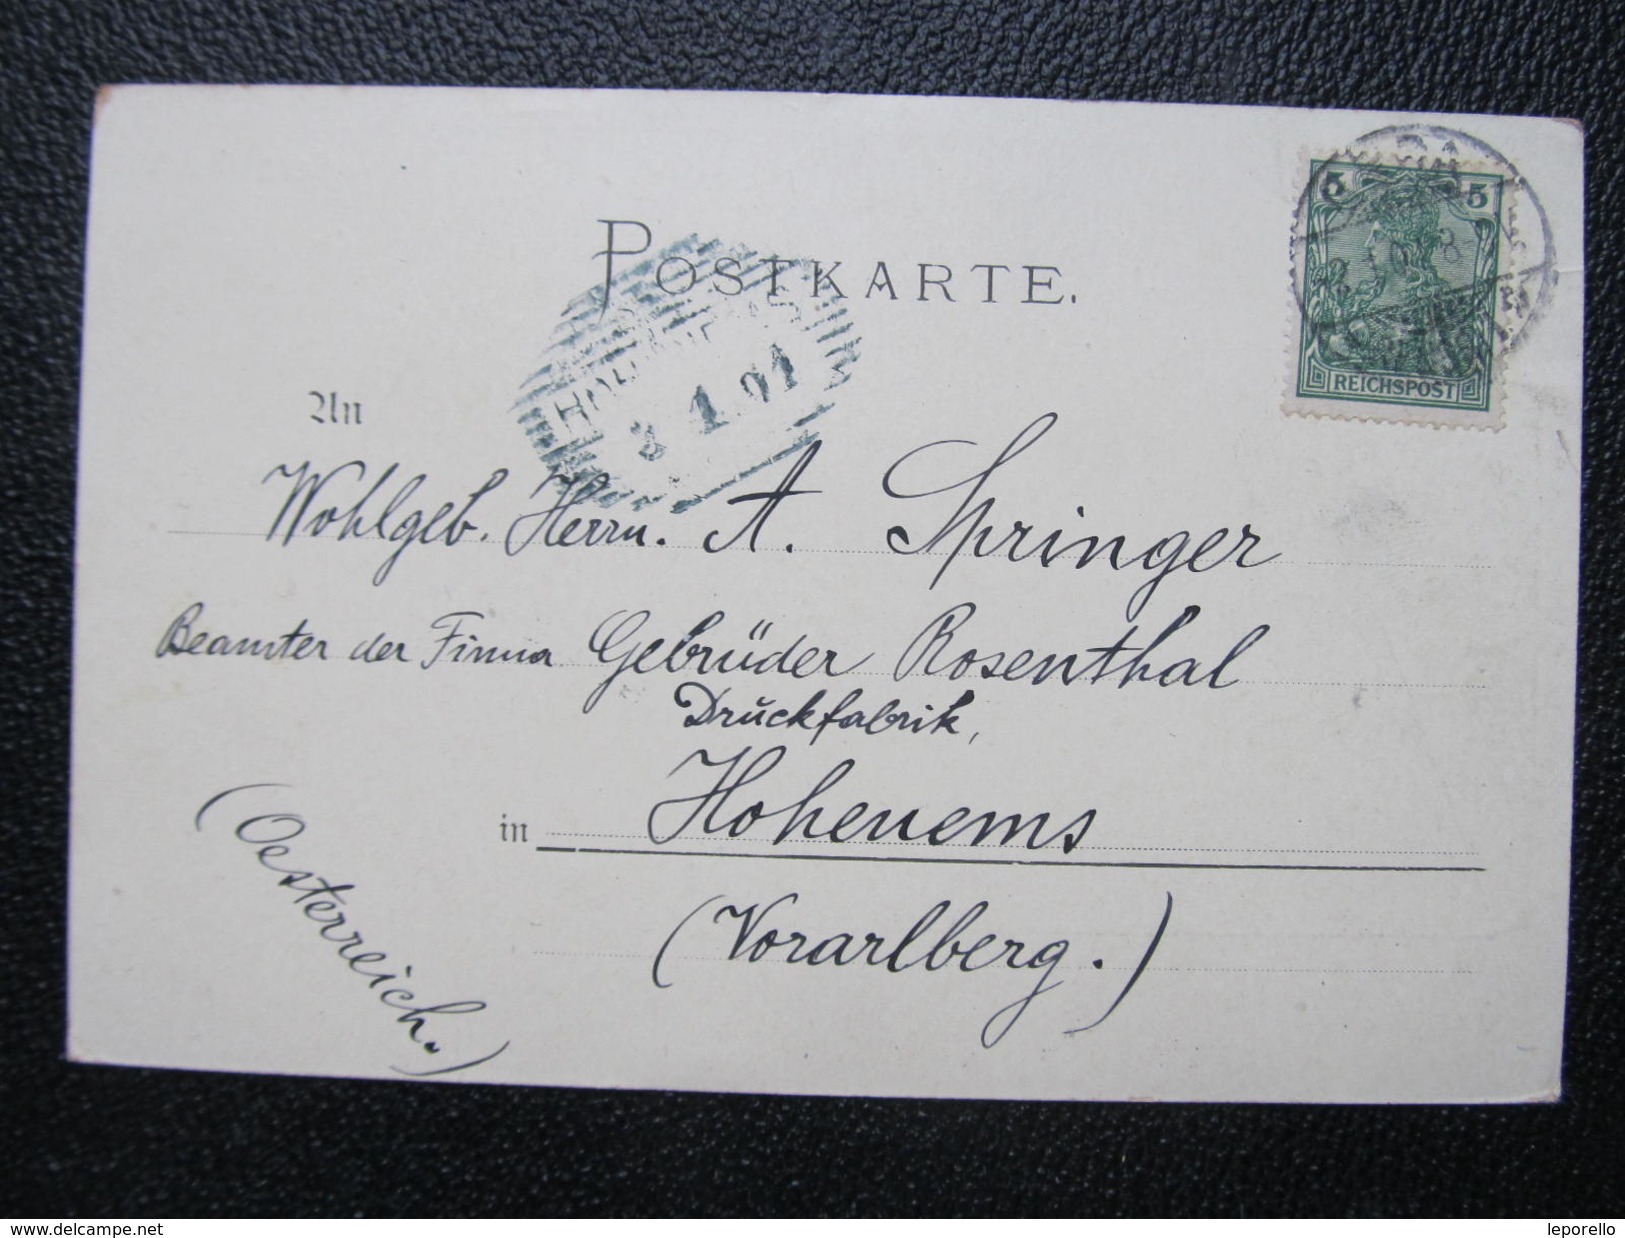 POSTKARTE.
5 5
REICHSPOST
3 1 01
An
Wohlgeb. Herrn. A. Springer
Beamter der Firma Gebrüder Rosenthal
Druckfabrik,
in Hohenems
(Vorarlberg.)
(Oesterreich.)
www.delcampe.net
leporello